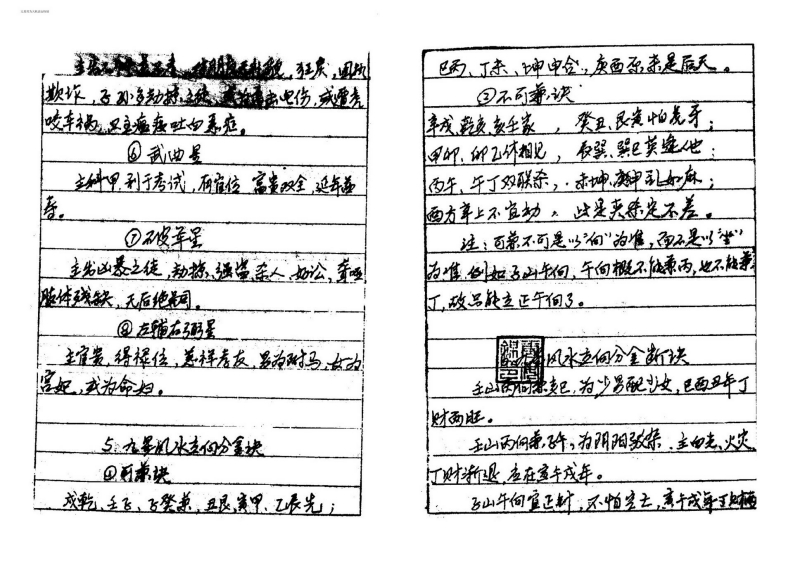 狂庆,
欺诈,
咬车祸,
⑥武曲星
主科甲,利于考试,有官位,富贵双全,延年益
寿。
⑦破军星
主出凶暴之徒,劫掠、强盗、杀人、好讼,聋哑
肢体残缺,无后绝嗣。
⑧左辅右弼星
主官贵,得禄位,慈祥孝友,男为附马,女为
宫妃,或为命妇。
5、九星风水立向分金诀
①可兼诀
戌乾、壬子、子癸兼,丑艮、寅甲、乙辰先;
巳丙、丁未、坤申合,庚酉添来是后天。
②不可兼诀
辛戌、乾亥、亥壬家,癸丑、艮寅怕虎牙;
甲卯、卯乙休相见,辰巽、巽巳莫逢他;
丙午、午丁双联杀,未坤、庚申乱如麻;
酉方辛上不宜动,此是夹杂定不差。
注:可兼不可是以“向”为准,而不是以“坐”
为准,例如子山午向,午向概不能兼丙,也不能兼
丁,故只能立正午向了。
九星风水立向分金断诀
壬山丙向兼亥巳,为少男配少女,巳酉丑年丁
财两旺。
壬山丙向兼子午,为阴阳驳杂,主血光、火灾
丁财渐退,应在寅午戌年。
子山午向宜正针,不怕空亡,寅午戌年丁财